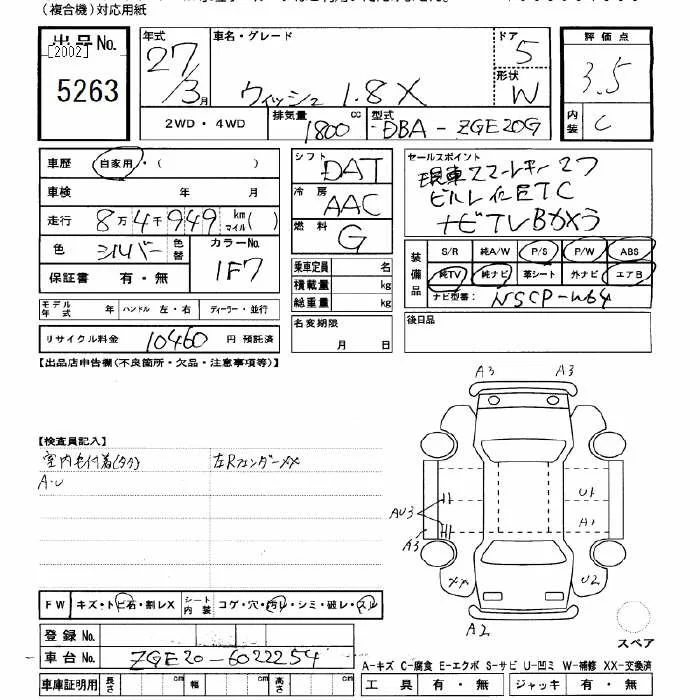 (複合機)対応用紙
出品No.
[2002]
5263
年式
27/3月
車名・グレード
ウィッシュ 1.8X
ドア
5
形状
W
評価点
3.5
内装
C
2WD・4WD
排気量
1800 cc
型式
DBA-ZGE20G
車歴
自家用・( )
車検 年 月
走行 8万4千949 km マイル( )
色 シルバー
色替
カラーNo.
1F7
保証書 有・無
シフト
DAT
冷房
AAC
燃料
G
乗車定員 名
積載量 kg
総重量 kg
セールスポイント
現車スマートキー2ツ
ビルトインETC
ナビTVBカメラ
装備品
S/R 純A/W P/S P/W ABS
純TV 純ナビ 革シート 外ナビ エアB
ナビ型番: NSCP-W64
モデル年式 年 ハンドル 左・右 ディーラー・並行
リサイクル料金 10460 円 預託済
名変期限
月 日
後日品
【出品店申告欄(不良箇所・欠品・注意事項等)】
A3 A3
【検査員記入】
室内毛付着(多少)
左Rフェンダーxx
A・U
U1
AU3
A1
A3
XX
U2
A2
FW キズ・トビ石・割レX
シート内装 コゲ・穴・汚レ・シミ・破レ・スレ
登録No.
車台No. ZGE20-6022254
スペア
A-キズ C-腐食 E-エクボ S-サビ U-凹ミ W-補修 XX-交換済
車庫証明用 長さ cm 幅 cm 高さ cm
工具 有・無 ジャッキ 有・無